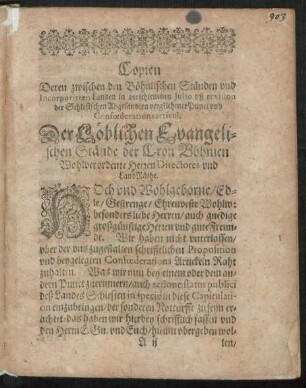 903
Copien
Deren zwischen den Böhmischen Ständen vnd
Incorporirten Landen in verschienenem Julio
der Schlesischen Abgesandten verglichene Punct vnd
Confœderationsarticul.
Der Löblichen Evangeli-
schen Stände der Cron Böhmen
Wolverordente Herren Directores vnd
Land Räthe.
HOch vnd Wohlgeborne/ Ed-
le/ Gestrenge/ Ehrenveste Wohlw:
besonders liebe Herren/ auch gnedige
großgünstige Herren vnd gute Freun-
de. Wir haben nicht vnterlassen/
vber der vns zugestalten schrifftlichen Proposition
vnd beygelegten Confœderations Articuln Raht
zuhalten. Was wir nun bey einem oder dem an-
dern Punct zuerinnern/ auch ratione status publici
deß Landes Schlesien in specie in diese Capitulati-
on einzubringen/ der sonderen Notturfft zu seyn er-
achtet/ das haben wir hierbey schrifftlich fassen vnd
den Herrn E. Gn. vnd Euch/ hiemit vbergeben wol-
A ij
len/